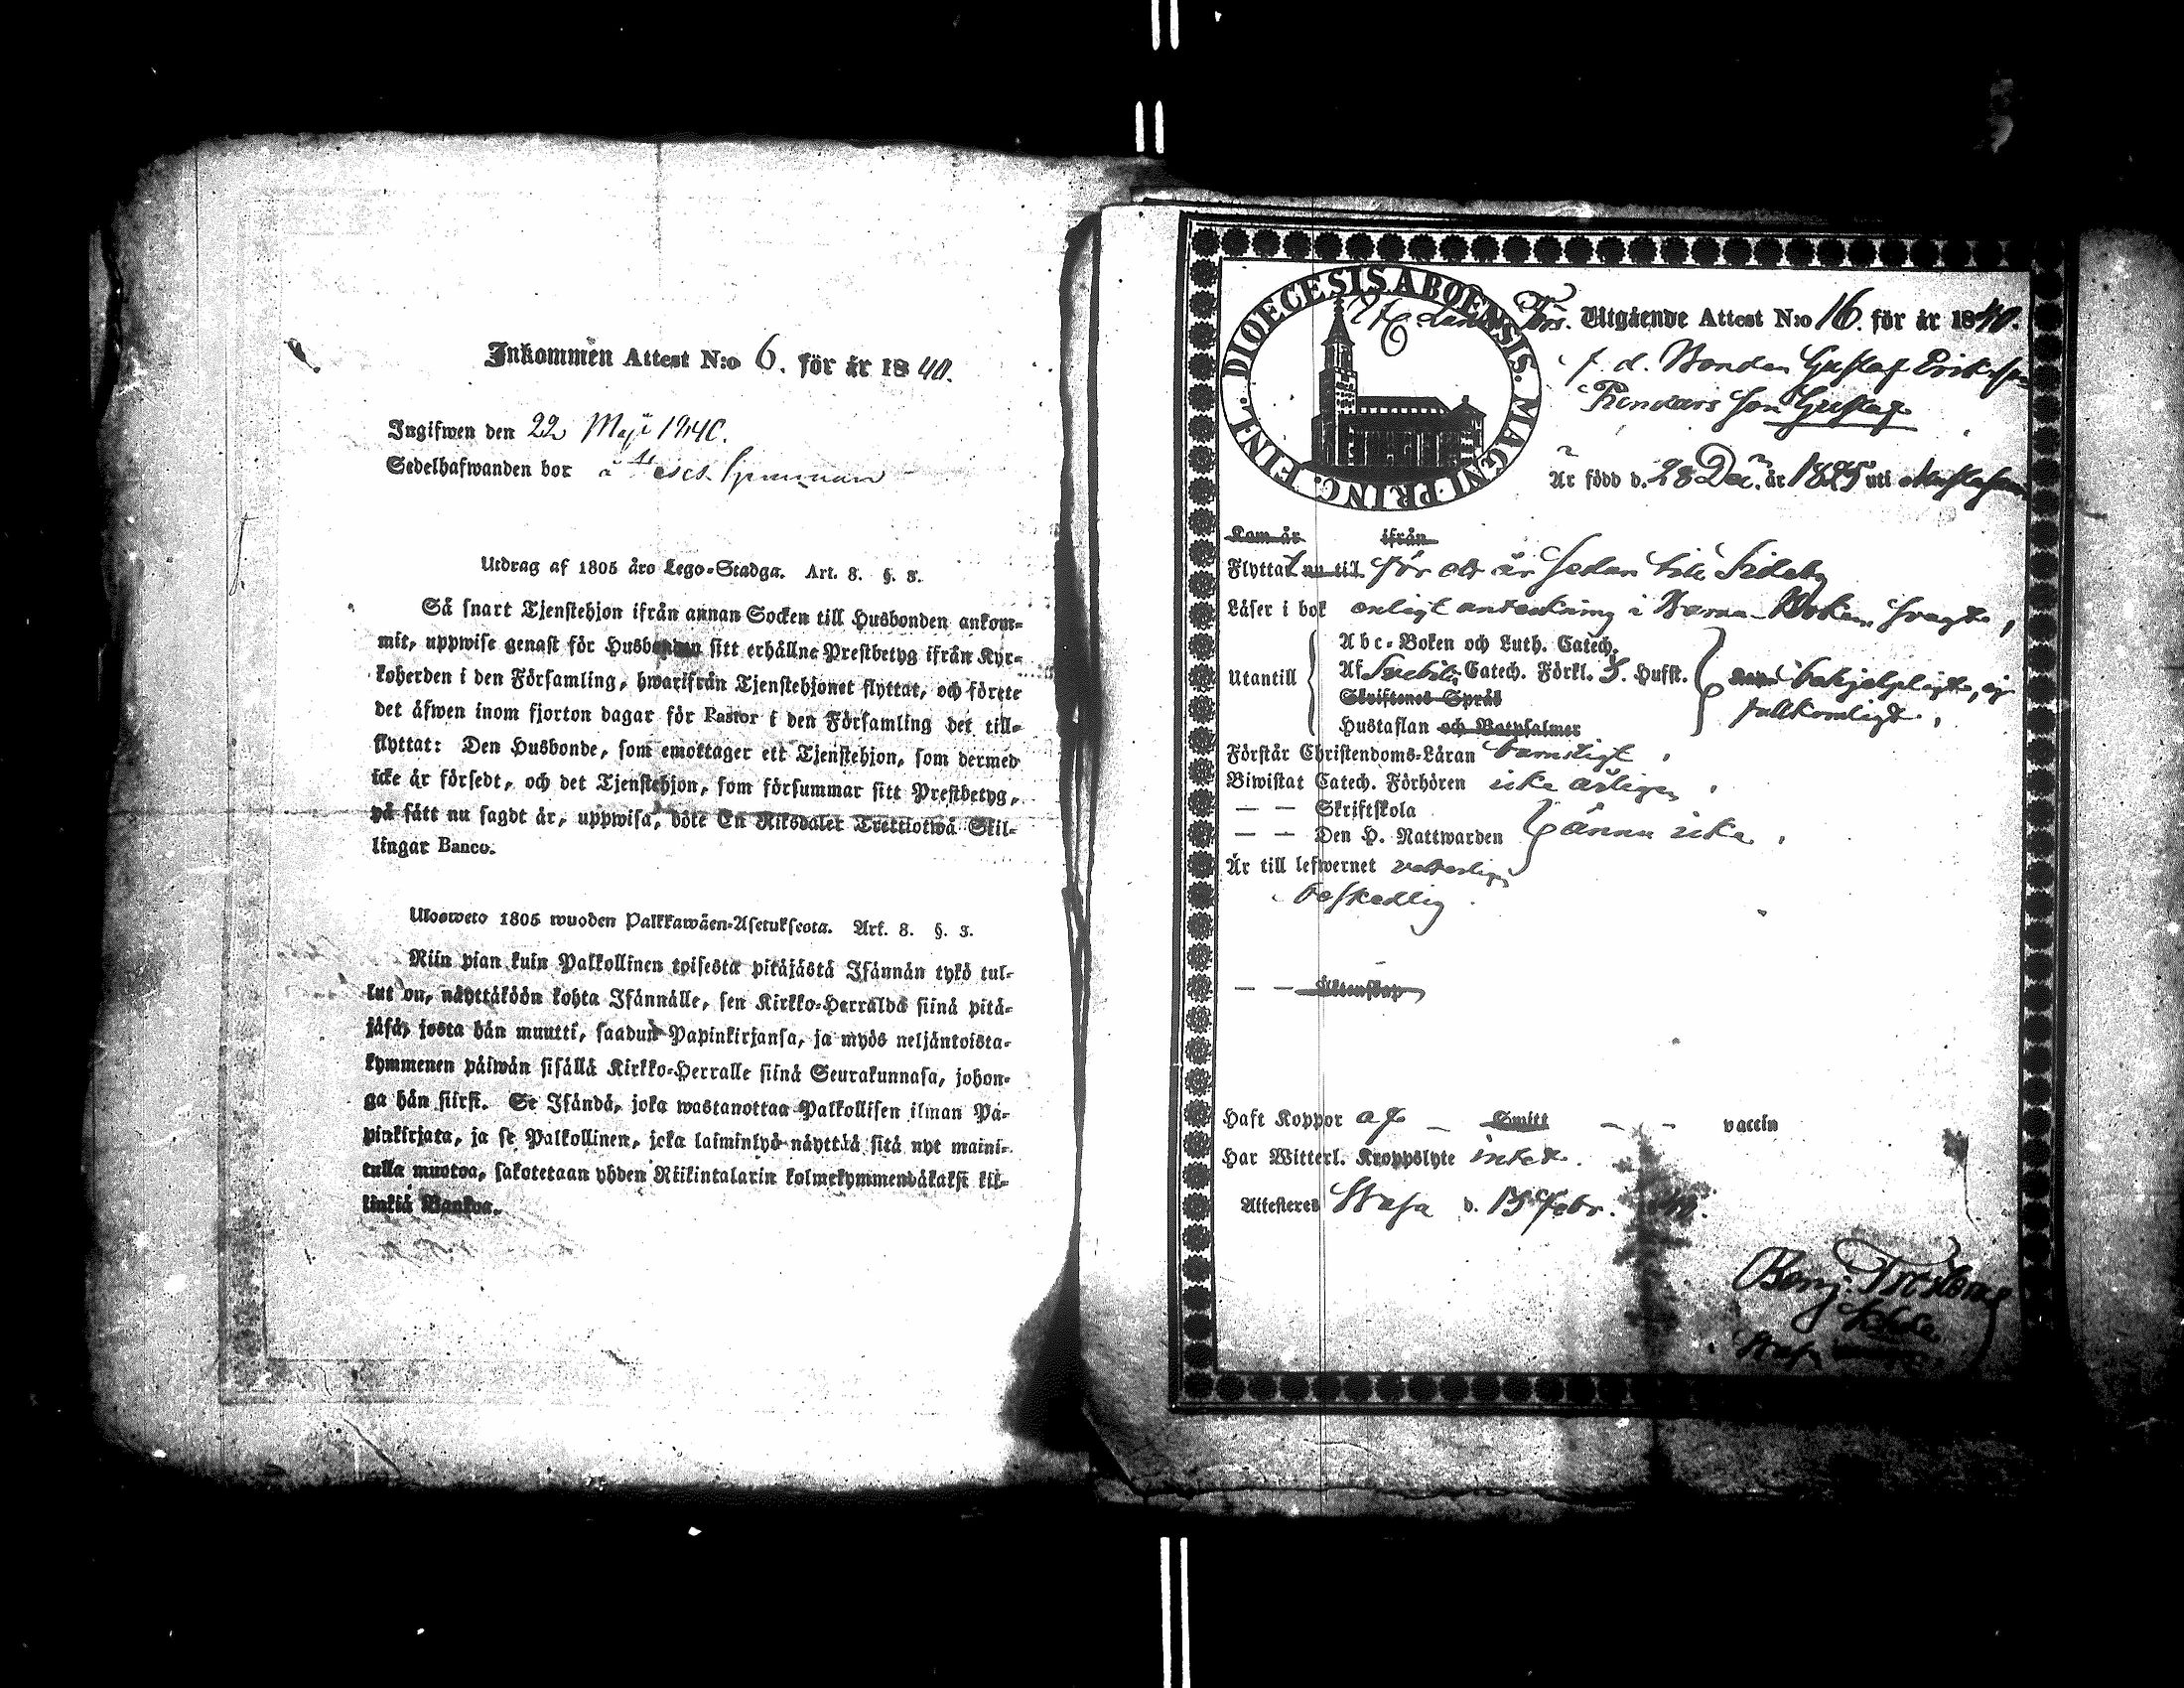 Inkommen Attest N:o 6. för år 1840.
Ingifwen den 22 Maji 1840.
Sedelhafwanden bor å
Utdrag af 1805 års Lego-Stadga. Art. 8. §. 3.
Så snart Tjenstehjon ifrån annan Socken till Husbonden ankom-
mit, uppwise genast för Husbonden sitt erhållne Prestbetyg ifrån Kyr-
koherden i den Församling, hwarifrån Tjenstehjonet flyttat, och förete
det äfwen inom fjorton dagar för Pastor i den Församling det till-
flyttat: Den Husbonde, som emottager ett Tjenstehjon, som dermed
icke är försedt, och det Tjenstehjon, som försummar sitt Prestbetyg,
på sätt nu sagdt är, uppwisa, böte En Riksdaler Trettiotwå Skil-
lingar Banco.
Ulosweto 1805 wuoden Palkkawäen-Asetuksesta. Art. 8. §. 3.
Niin pian kuin Palkollinen toisesta pitäjästä Isännän tykö tul-
lut on, näyttäköön kohta Isännälle, sen Kirkko-Herralda siinä pitä-
jäsä, josta hän muutti, saadun Papinkirjansa, ja myös neljäntoista-
kymmenen päiwän sisällä Kirkko-Herralle siinä Seurakunnasa, johon-
ga hän siirsi. Se Isändä, joka wastanottaa Palkollisen ilman Pa-
pinkirjata, ja se Palkollinen, joka laiminlyö näyttää sitä nyt maini-
tulla muotoa, sakotetaan yhden Riikintalarin kolmekymmendäkaksi kil-
linkiä Bankoa.
DIOECESIS ABOENSIS. MAGNI PRINC. FINL.
Utgående Attest N:o 16. för år 1840.
f. d. Bonden Gustaf Eriksson
son Gustaf
Är född d. 28 Dec. år 1825 uti
Kom år ifrån
Flyttat nu till för ett år sedan till Sideby
Läser i bok enligt anteckning i Barna-Boken svagt,
Utantill
Abc-Boken och Luth. Catech.
Af Svebilii Catech. Förkl. 3. Hufst.
Skriftenes Språk
Hustaflan och Botpsalmer
behjelpligt, ej
fullkomligt,
Förstår Christendoms-Läran barnsligt,
Biwistat Catech. Förhören icke årligen,
— — Skriftskola
— — Den H. Nattwarden
ännu icke,
Är till lefwernet veterligen
beskedlig.
— — Äktenskap
Haft Koppor af — Smitt — — vaccin
Har Witterl. Kroppslyte intet.
Attesteras Wasa d. 15 Febr. 1840.
Benj.
Wasa